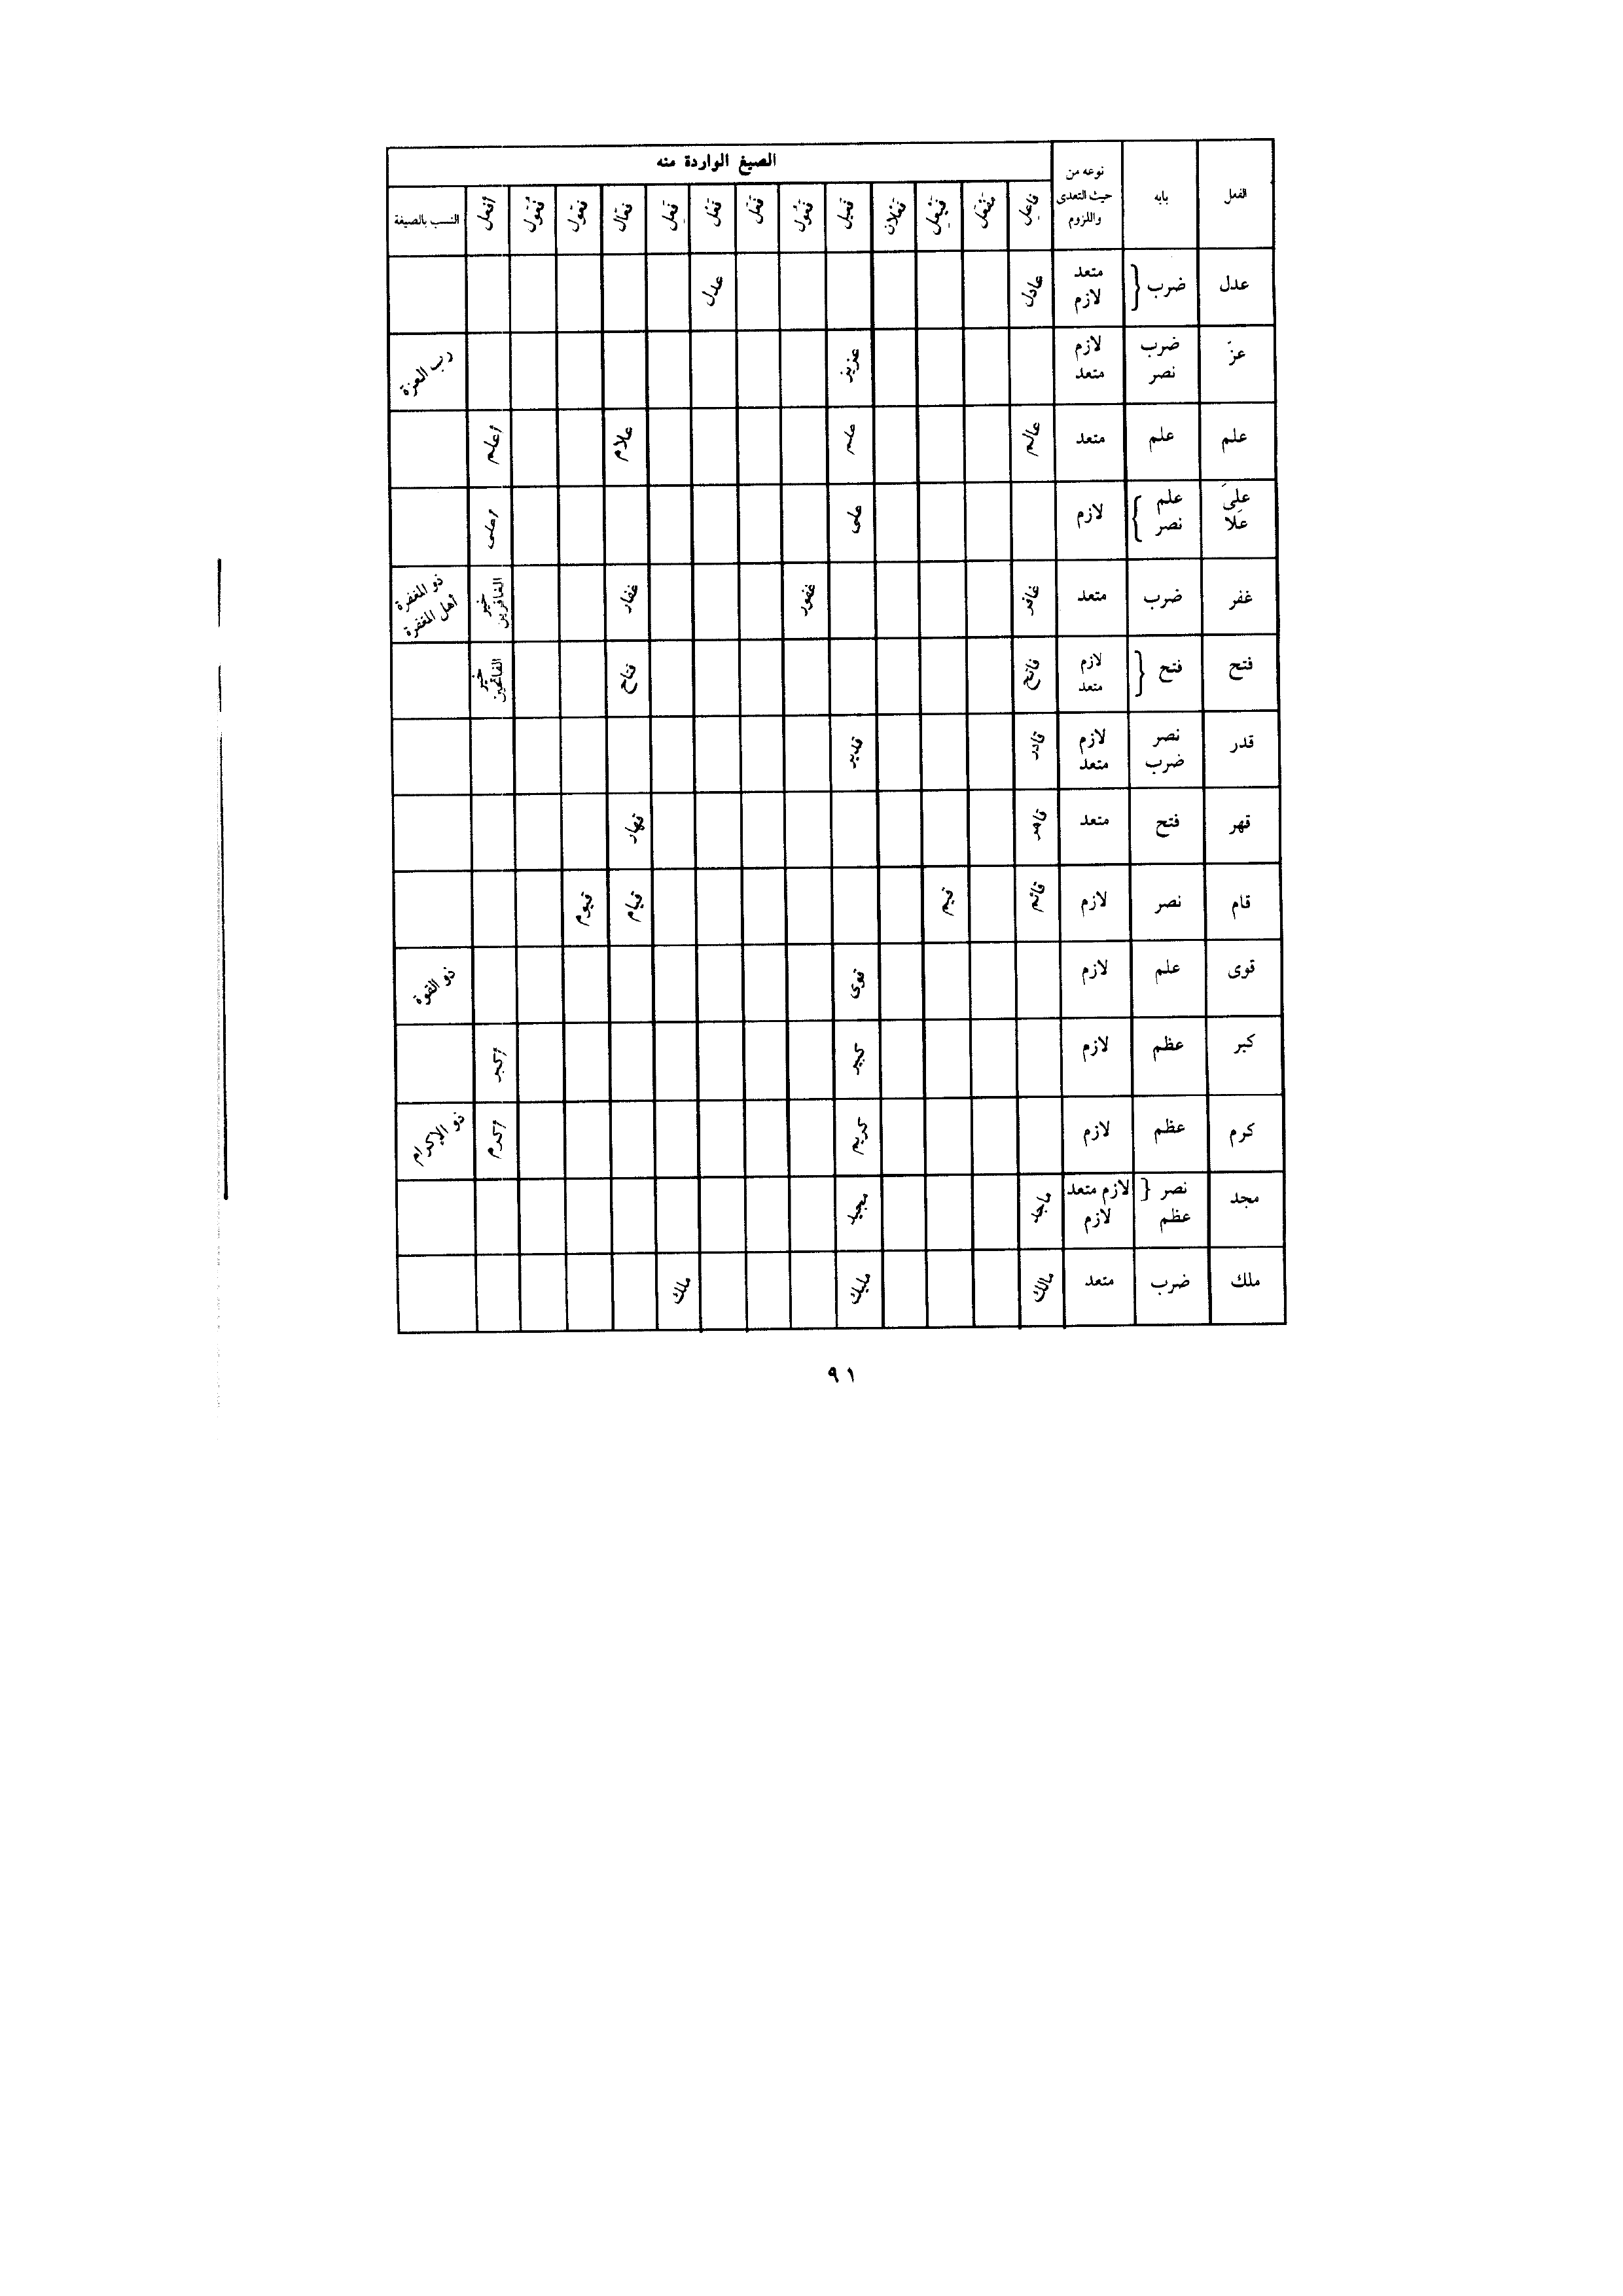 الصيغ الواردة منه
الفعل بابه نوعه من حيث التعدى واللزوم فاعل مفعل فيعل فعلان فعيل فعول فعل فعل فعل فعال فعول فعول أفعل النسب بالصيغة
عدل ضرب متعد لازم عادل عدل
عزّ ضرب نصر لازم متعد عزيز رب العزة
علم علم متعد عالم عليم علام أعلم
على علا علم نصر لازم على أعلى
غفر ضرب متعد غافر غفور غفار خير الغافرين ذو المغفرة أهل المغفرة
فتح فتح لازم متعد فاتح فتاح خير الفاتحين
قدر نصر ضرب لازم متعد قادر قدير
قهر فتح متعد قاهر قهار
قام نصر لازم قائم قيم قيام قيوم
قوى علم لازم قوى ذو القوة
كبر عظم لازم كبير أكبر
كرم عظم لازم كريم أكرم ذو الإكرام
مجد نصر عظم لازم متعد لازم ماجد مجيد
ملك ضرب متعد مالك مليك ملك
٩١